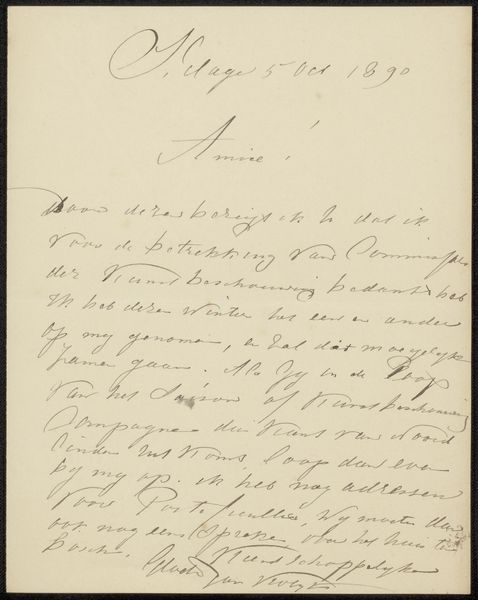 S. Hage 5 Oct 1890
Amice!
Door deze berigt ik U dat ik
voor de betrekking van Commissaris
der Kunstbeschouwing bedankt heb
Ik heb deze winter het een en ander
op my genomen, en zal dat moeyelyk
zamen gaan. Als gy in de loop
van het Saison of Kunstbeschouwing
Compagne die kant van Noord
einde uit komt, loop dan even
by my op. ik heb nog adressen
voor Porte feuilles, wy moeten dan
ook nog eens spreken over het huis te
bosch. Vriendschappelyke
Jan